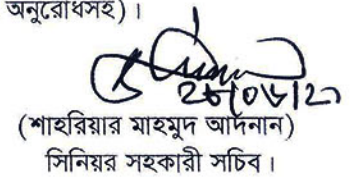 অনুরোধসহ)।
(শাহরিয়ার মাহমুদ আদনান)
সিনিয়র সহকারী সচিব।